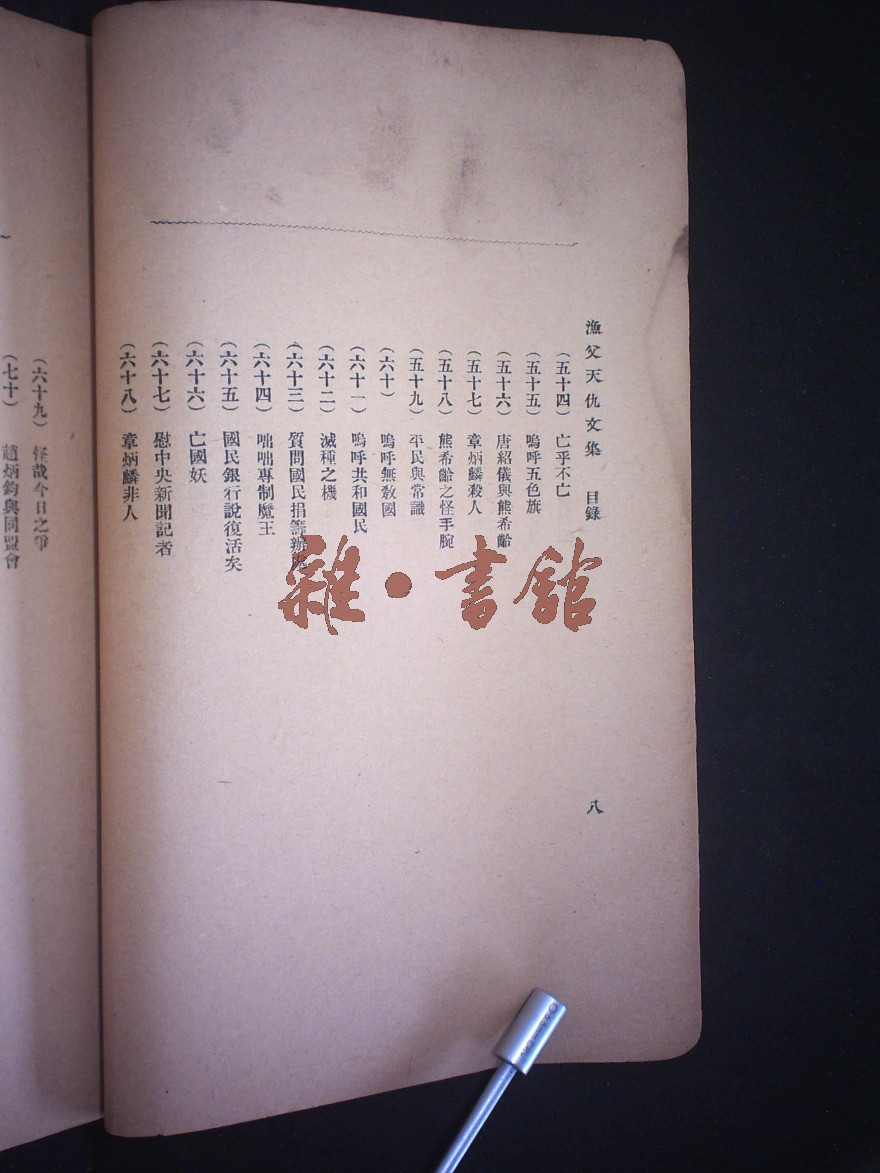 漁父天仇文集 目錄 八
(五十四) 亡乎不亡
(五十五) 嗚呼五色旗
(五十六) 唐紹儀與熊希齡
(五十七) 章炳麟殺人
(五十八) 熊希齡之怪手腕
(五十九) 平民與常識
(六十) 嗚呼無教國
(六十一) 嗚呼共和國民
(六十二) 滅種之機
(六十三) 質問國民捐籌辦
(六十四) 咄咄專制魔王
(六十五) 國民銀行說復活矣
(六十六) 亡國妖
(六十七) 慰中央新聞記者
(六十八) 章炳麟非人
(六十九) 怪哉今日之爭
(七十) 趙炳鈞與同盟會
雜·書館